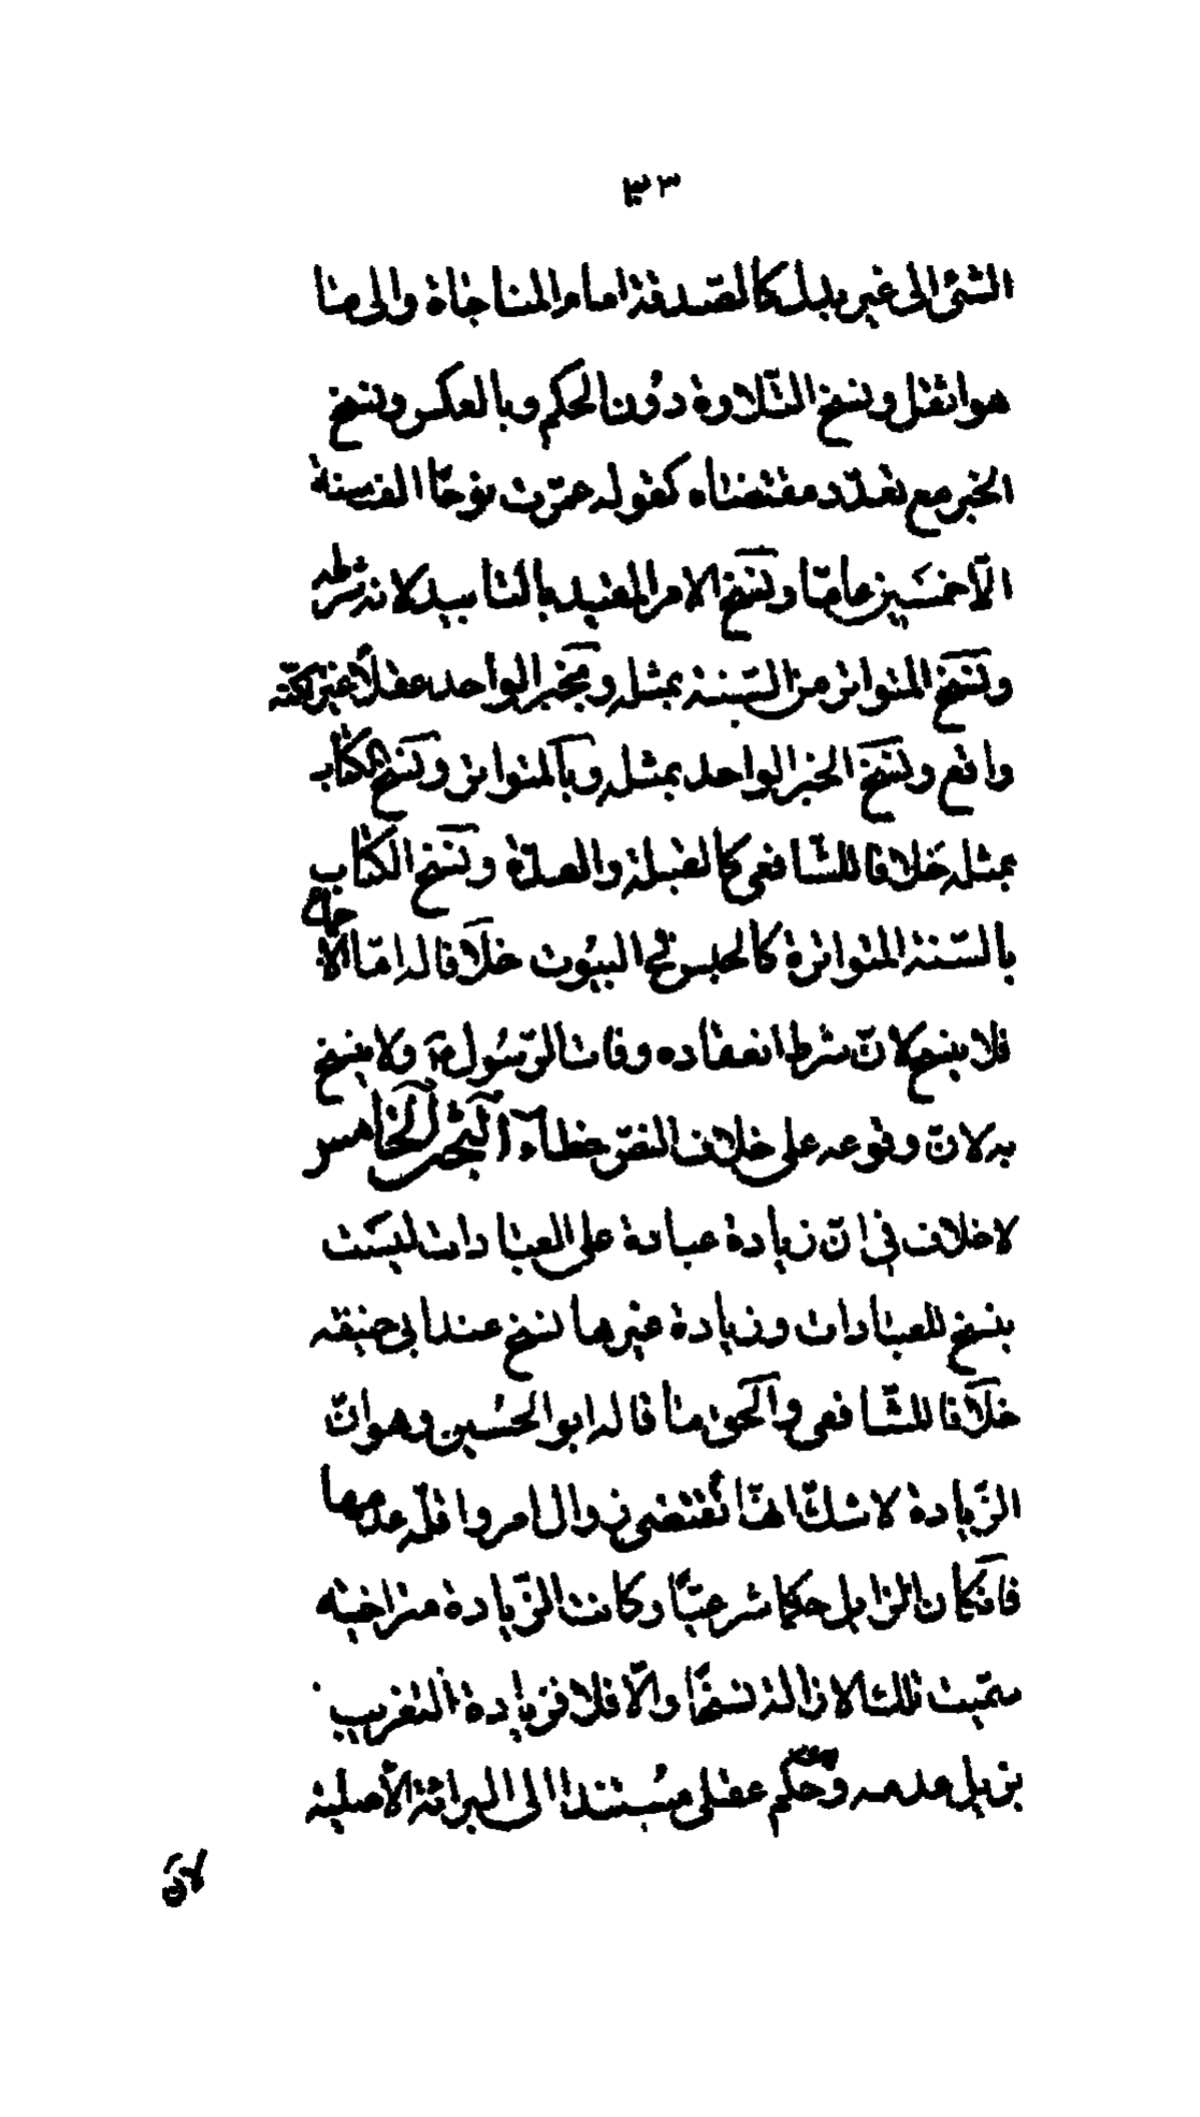 ٣٣
الشئ الى غير بدل كالصّدقة امام المناجاة والى ما
هو اثقل ونسخ التّلاوة دون الحكم وبالعكس ونسخ
الخبر مع تعدّد مقتضاه كقوله عمّرت نوحًا الف سنة
الّا خمسين عامًا ونسخ الامر المقيد بالتابيد لانه شرطه
ونسخ المتواتر من السّنة بمثله وبخبر الواحد عقلًا غير لكنّه
واقع ونسخ الخبر الواحد بمثله وبالمتواتر ونسخ الكتاب
بمثله خلافا للشّافعى كالقبلة والعدّة ونسخ الكتاب
بالسّنة المتواترة كالحبس فى البيوت خلافا له امّا الاجماع
فلا ينسخ لانّ شرط انعقاده وفات الرّسول ص ولا ينسخ
به لانّ وقوعه على خلاف النصّ خطاء البحث الخامس
لا خلاف فى انّ زيادة عبادة على العبادات ليست
بنسخ للعبادات وزيادة غيرها نسخ عند ابى حنيفه
خلافا للشّافعى والحق ما قاله ابو الحسين وهو انّ
الزّيادة لا شكّ انّها تقتضى زوال امر واقلّه عدمها
فان كان الزايل حكما شرعيّا وكانت الزّيادة متراخيه
سمّيت تلك الازالة نسخًا والّا فلا فزيادة التغريب
يزيل عدمه وحكم عقلى مستندا الى البرائة الأصلية
لانّ